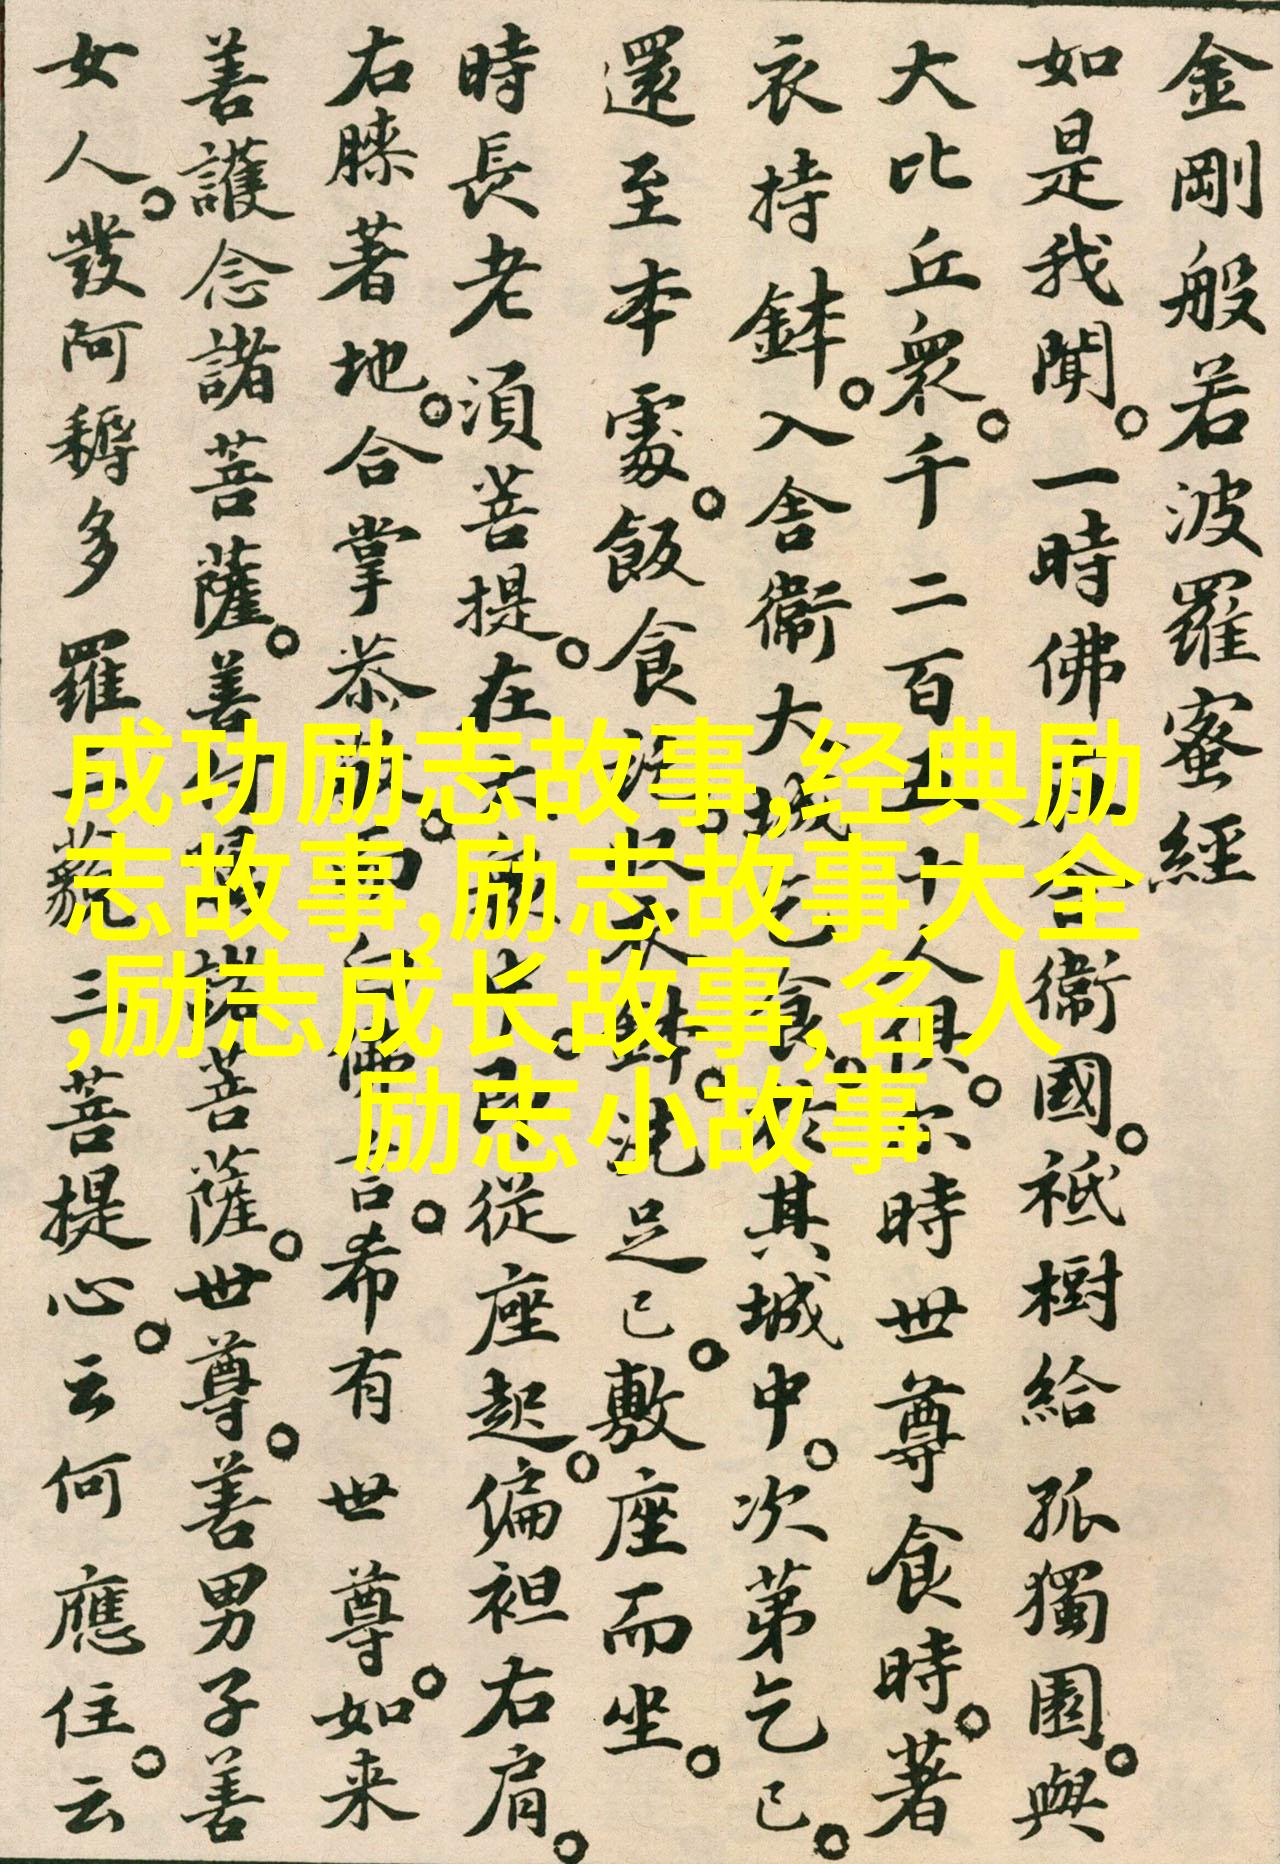 金剛般若波羅蜜經
如是我聞。一時佛在舍衛國。祇樹給孤獨園。與
大比丘衆。千二百五十人俱。尒時世尊食時。著
衣持鉢。入舍衛大城乞食。於其城中。次第乞已。
還至本處。飯食訖。收衣鉢。洗足已。敷座而坐。
時長老湏菩提。在大衆中。即從座起。偏袒右肩。
右膝著地。合掌恭敬。而白佛言。希有世尊。如来
善護念諸菩薩。善付囑諸菩薩。世尊。善男子善
女人。發阿耨多羅三藐三菩提心。云何應住。云
成功励志故事,经典励
志故事,励志故事大全
,励志成长故事,名人
励志小故事